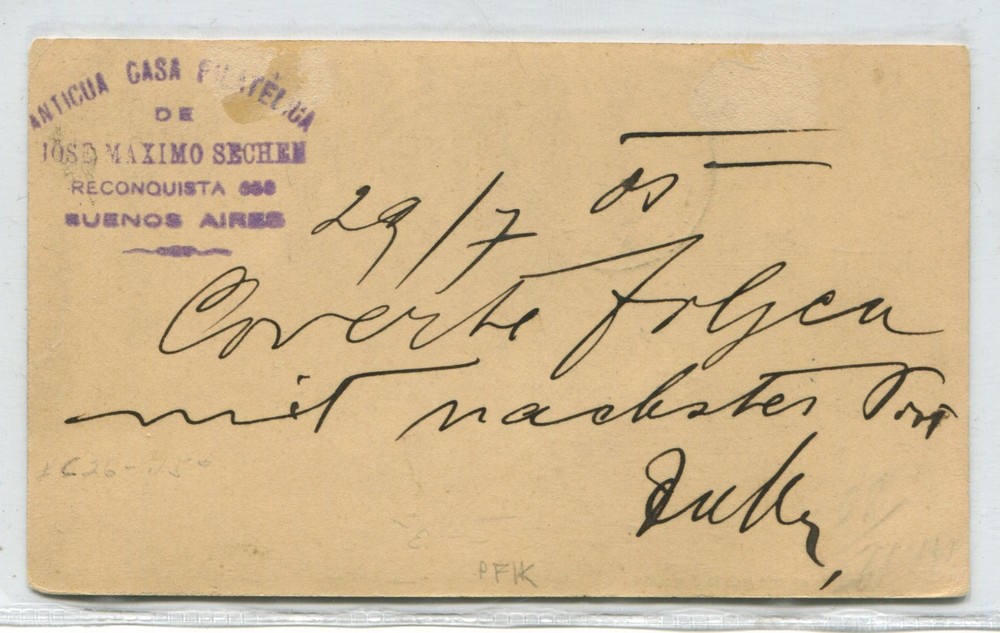 ANTIGUA CASA FILATÉLICA
DE
JOSE MAXIMO SECHEN
RECONQUISTA 658
BUENOS AIRES
29/7 05
Coverte folgen
mit nachster Post
PFIK